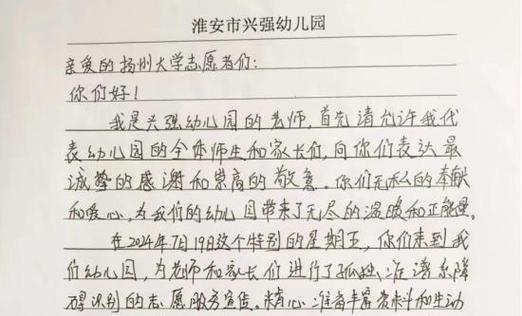 淮安市兴强幼儿园
亲爱的扬州大学志愿者们：
你们好！
我是兴强幼儿园的老师，首先请允许我代
表幼儿园的全体师生和家长们，向你们表达最
诚挚的感谢和崇高的敬意。你们无私的奉献
和爱心，为我们的幼儿园带来了无尽的温暖和正能量。
在2024年7月19日这个特别的星期五，你们来到我
们幼儿园，为老师和家长们进行了孤独症谱系障
碍识别的志愿服务宣传。精心准备丰富资料和生动